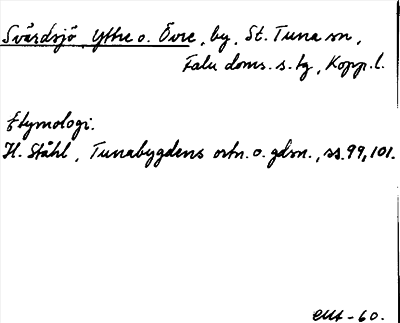 Svärdsjö, Yttre o. Övre, by, St. Tuna sn,
Falu doms. s. tg, Kopp. l.
Etymologi.
H. Ståhl, Tunabygdens ortn. o. gdsn., ss. 99, 101.
-60.